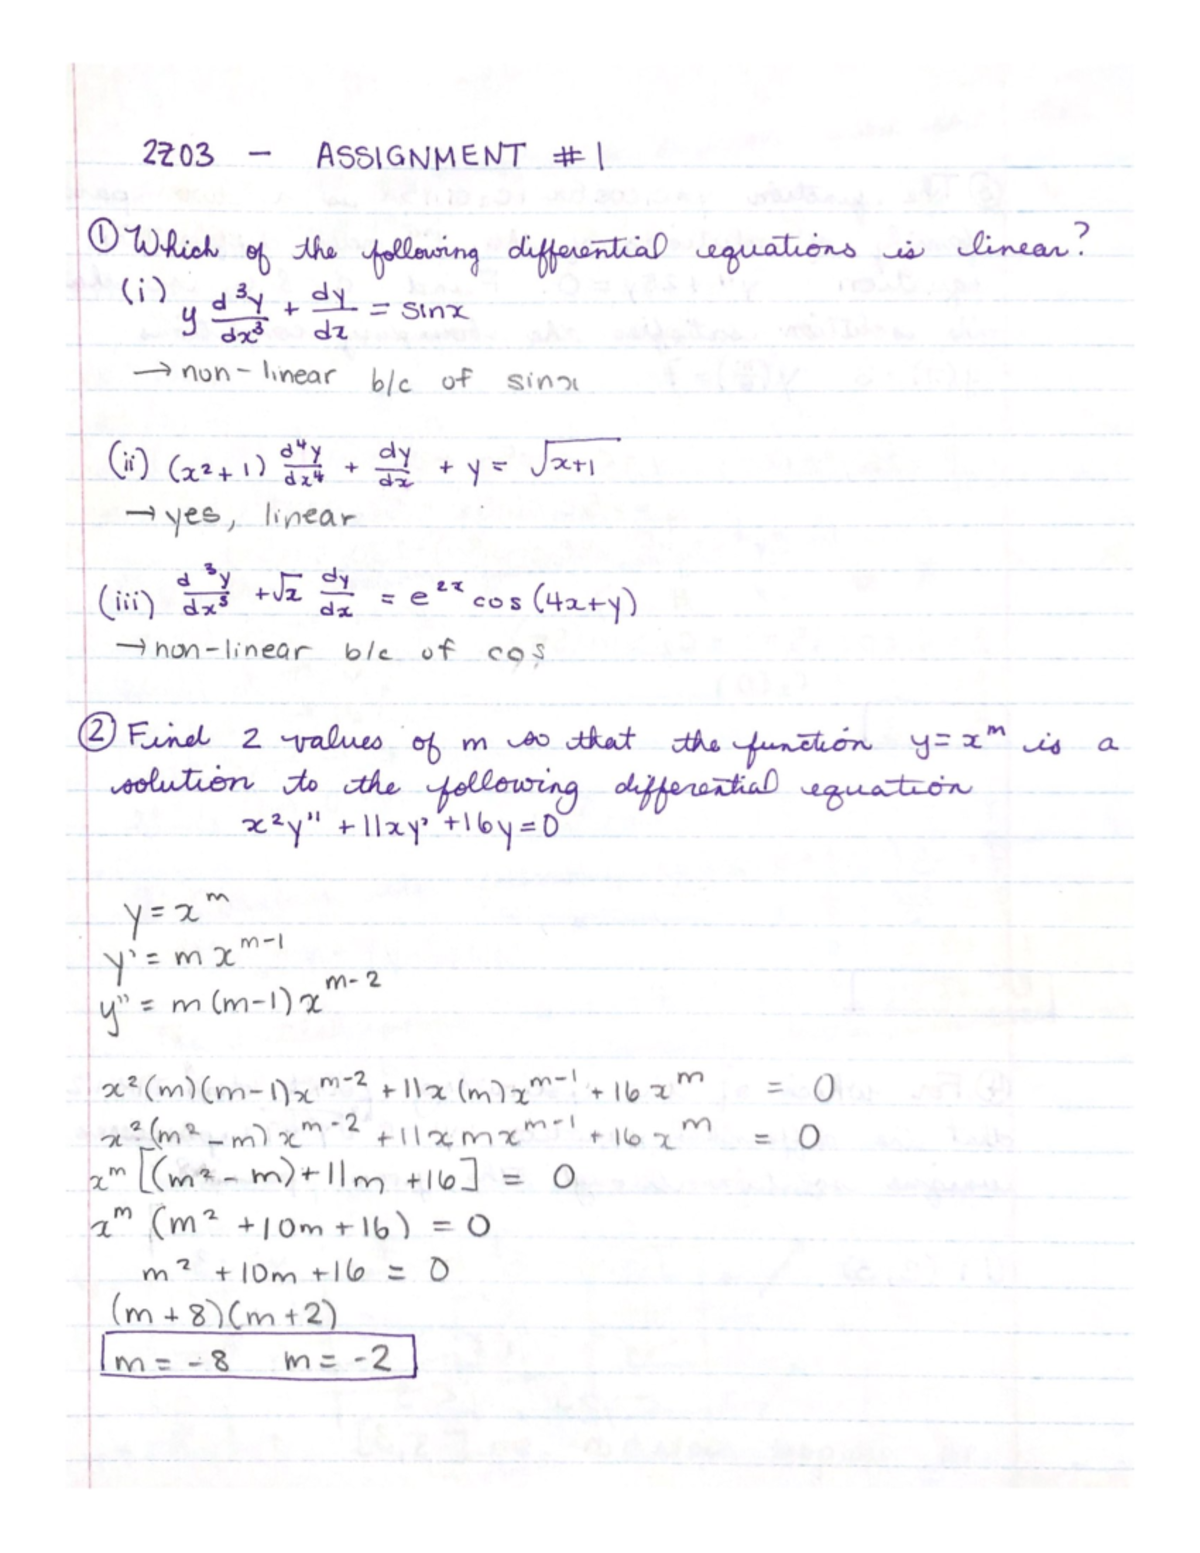 2Z03 - ASSIGNMENT #1
① Which of the following differential equations is linear?
(i) y d³y/dx³ + dy/dx = sinx
→ non-linear b/c of sinx
(ii) (x²+1) d⁴y/dx⁴ + dy/dx + y = √(x+1)
→ yes, linear
(iii) d³y/dx³ + √x dy/dx = e^(2x) cos(4x+y)
→ non-linear b/c of cos
② Find 2 values of m so that the function y=x^m is a
solution to the following differential equation
x²y'' + 11xy' + 16y = 0
y = x^m
y' = m x^(m-1)
y'' = m(m-1)x^(m-2)
x²(m)(m-1)x^(m-2) + 11x(m)x^(m-1) + 16x^m = 0
x²(m²-m)x^(m-2) + 11xmx^(m-1) + 16x^m = 0
x^m [(m²-m)+11m+16] = 0
x^m (m²+10m+16) = 0
m² + 10m + 16 = 0
(m+8)(m+2)
m = -8 m = -2